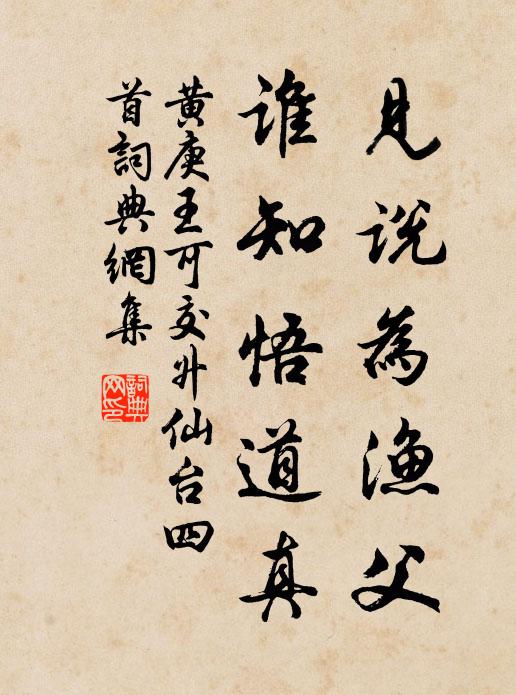 見説為漁父
誰知悟道真
黄庚王可交升仙台四
首詞典網集
詞典
网印